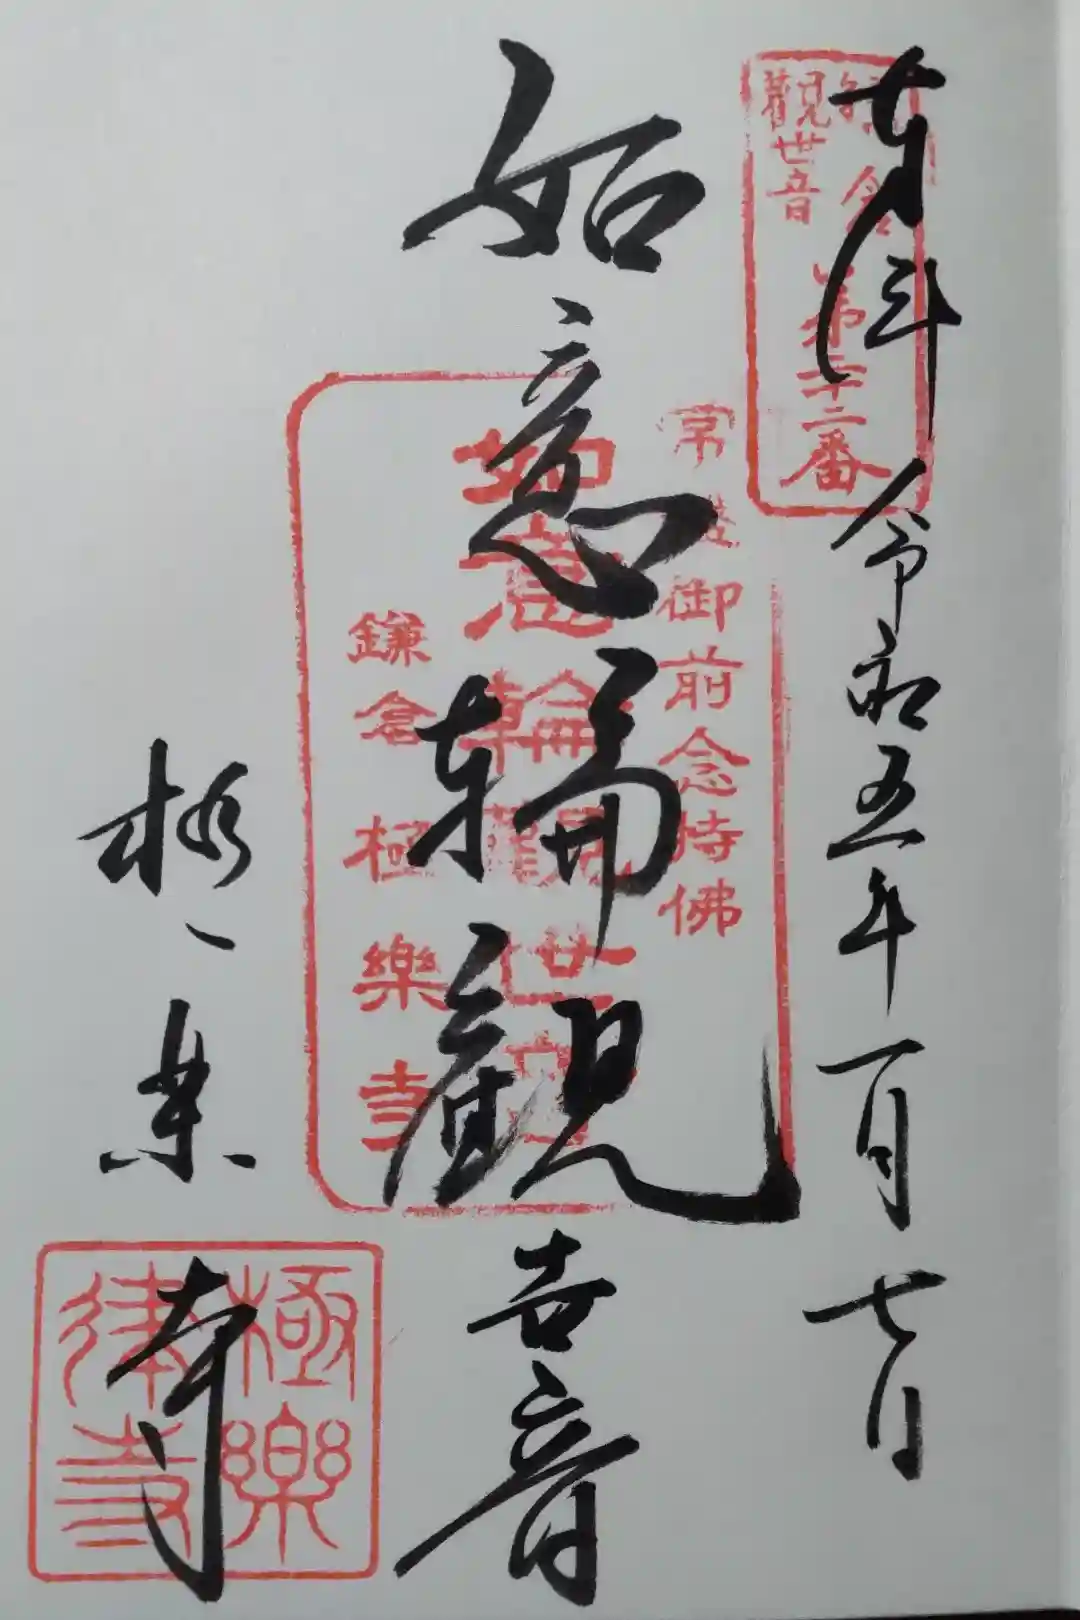 奉拝 令和五年一月七日
鎌倉
觀世音
第二十二番
如意輪観世音
常盤御前念持佛
如意輪觀世音
鎌倉極樂寺
極楽寺
極樂
律寺